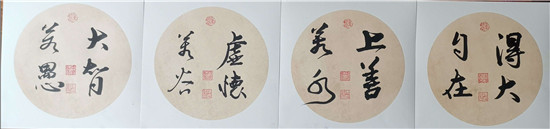 得大
自在
上善
若水
虛懷
若谷
大智
若愚